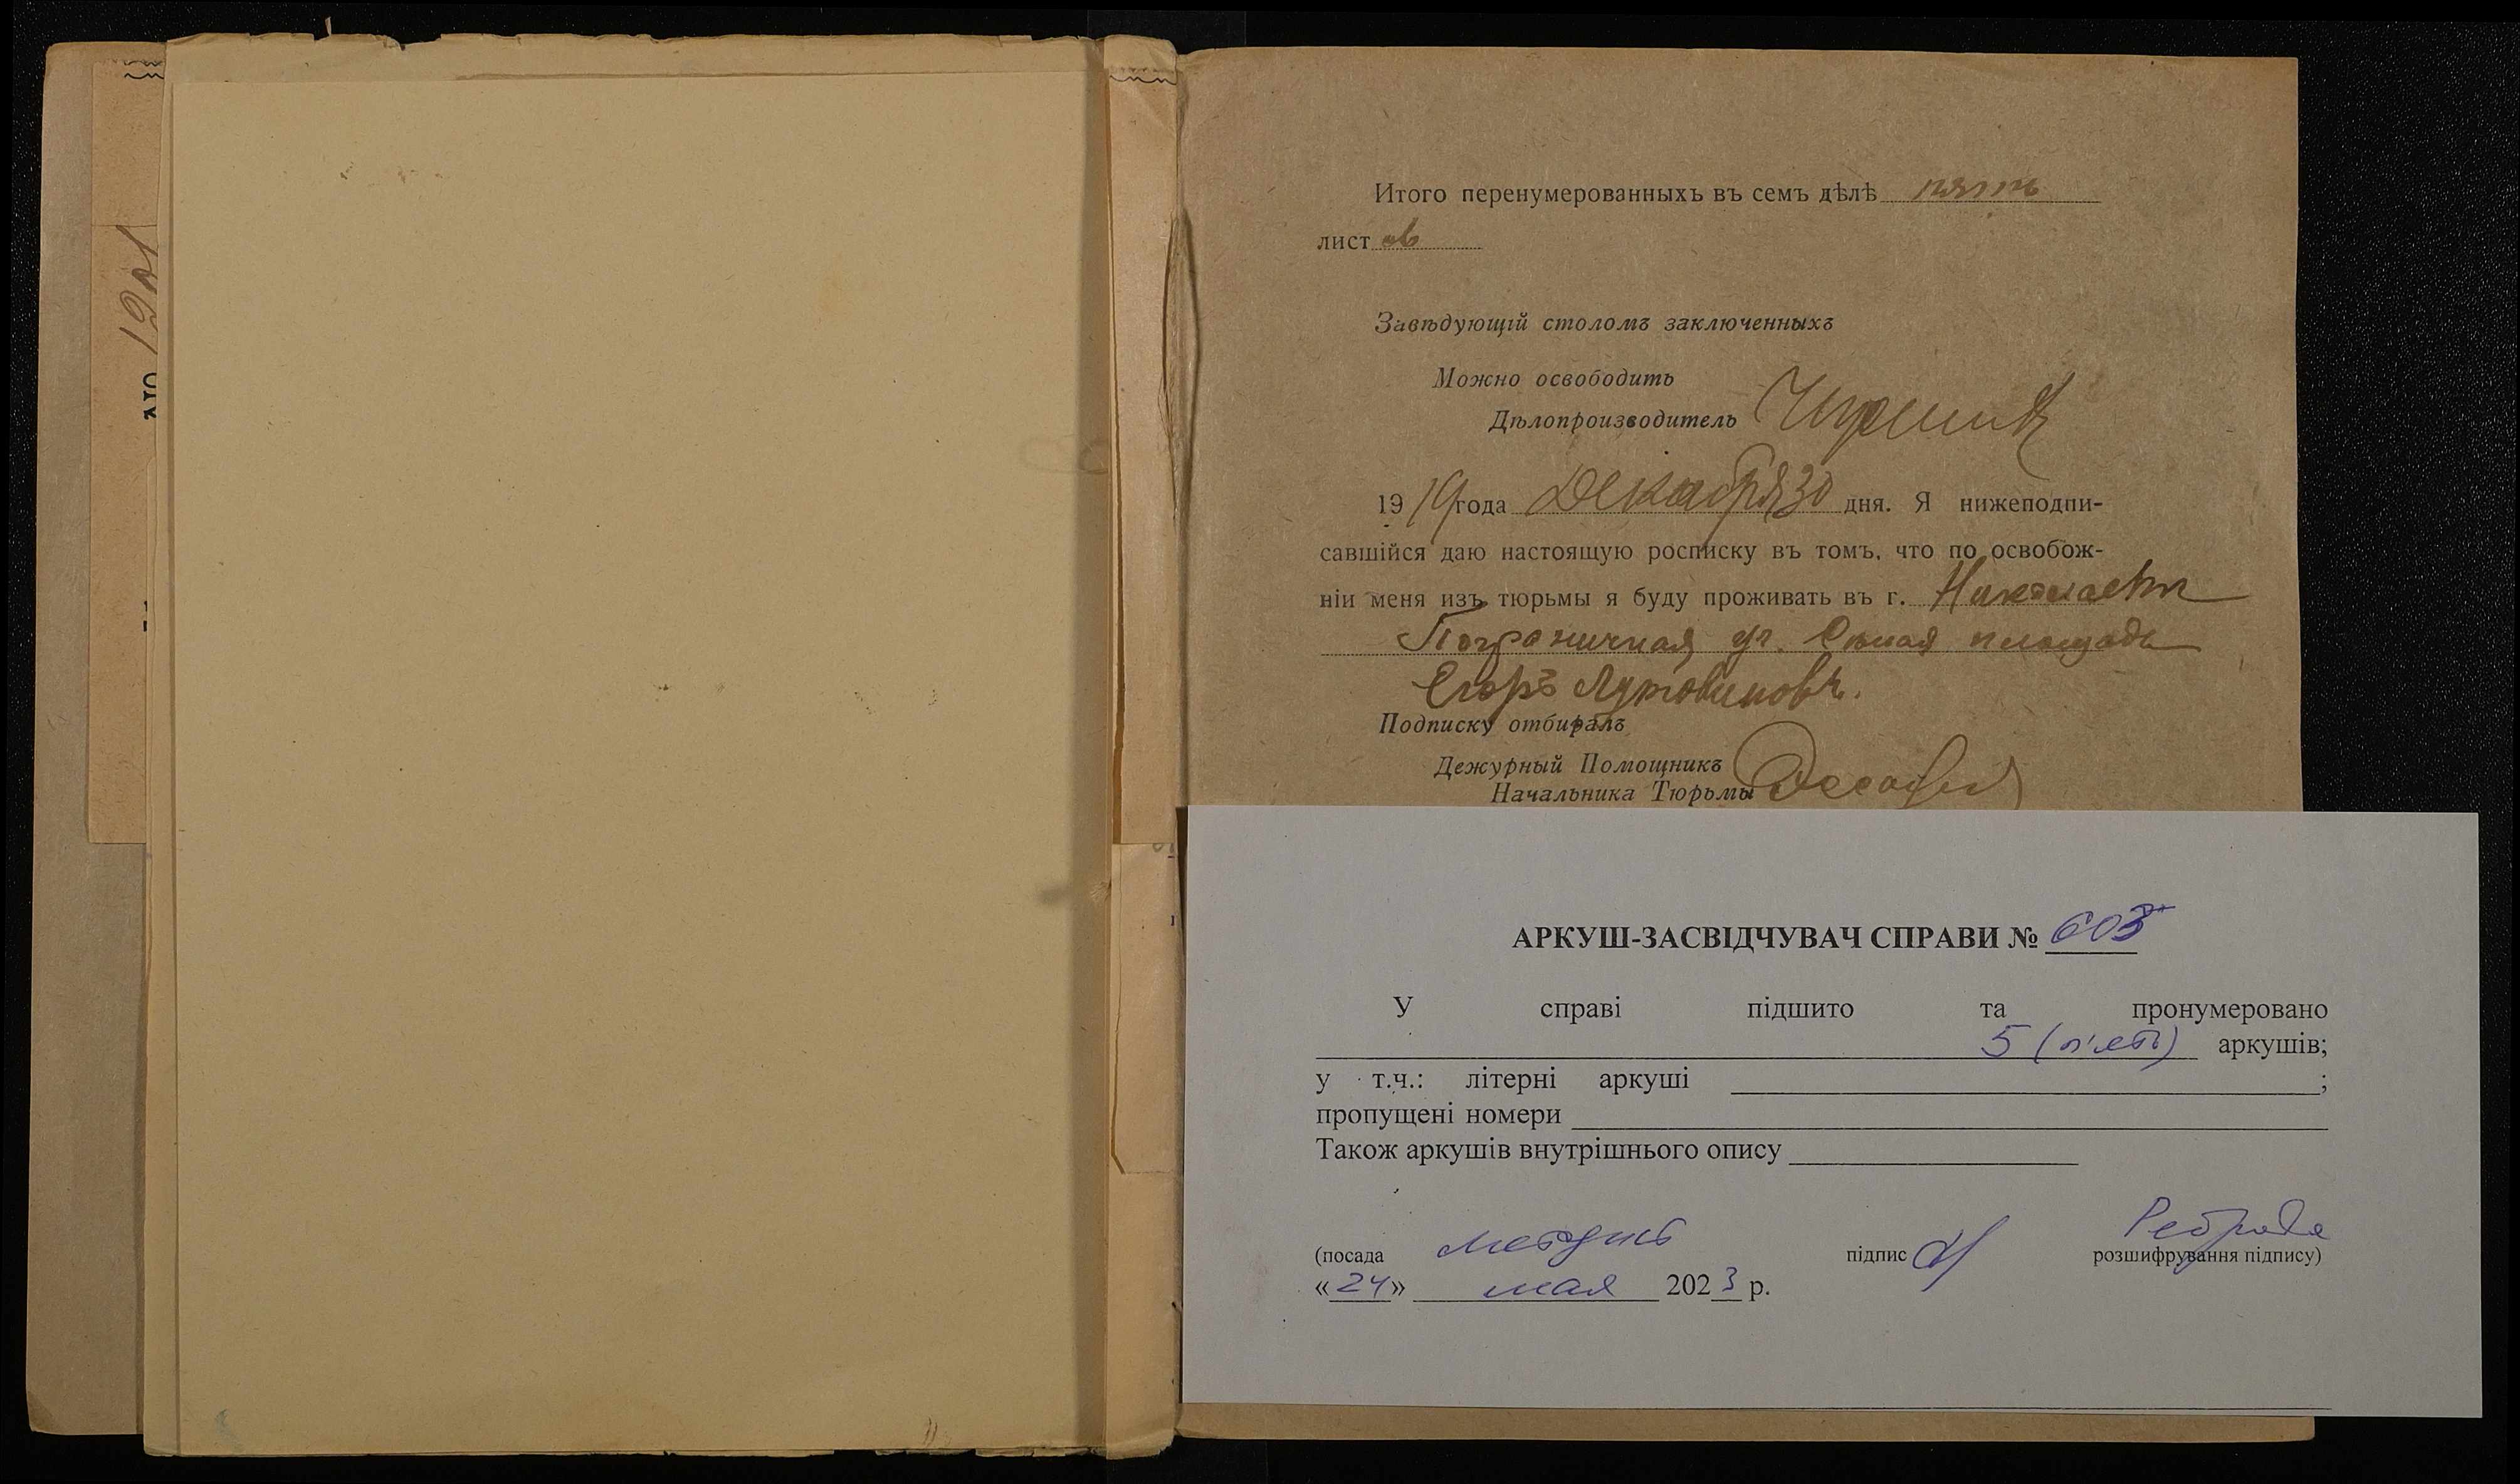 Итого перенумерованныхъ въ семъ дѣлѣ пять
листов
Завѣдующій столомъ заключенныхъ
Можно освободить
Дѣлопроизводитель
1919 года Декабря 30 дня. Я нижеподпи-
савшійся даю настоящую росписку въ томъ, что по освобож-
ніи меня изъ тюрьмы я буду проживать въ г. Николаевѣ
Пограничная ул. Сѣнная площадь
Егоръ Лутовиновъ.
Подписку отбиралъ
Дежурный Помощникъ
Начальника Тюрьмы
АРКУШ-ЗАСВІДЧУВАЧ СПРАВИ №
У справі підшито та пронумеровано
5 (п'ять) аркушів;
у т.ч.: літерні аркуші ;
пропущені номери
Також аркушів внутрішнього опису
(посада підпис розшифрування підпису)
«24» мая 2023 р.